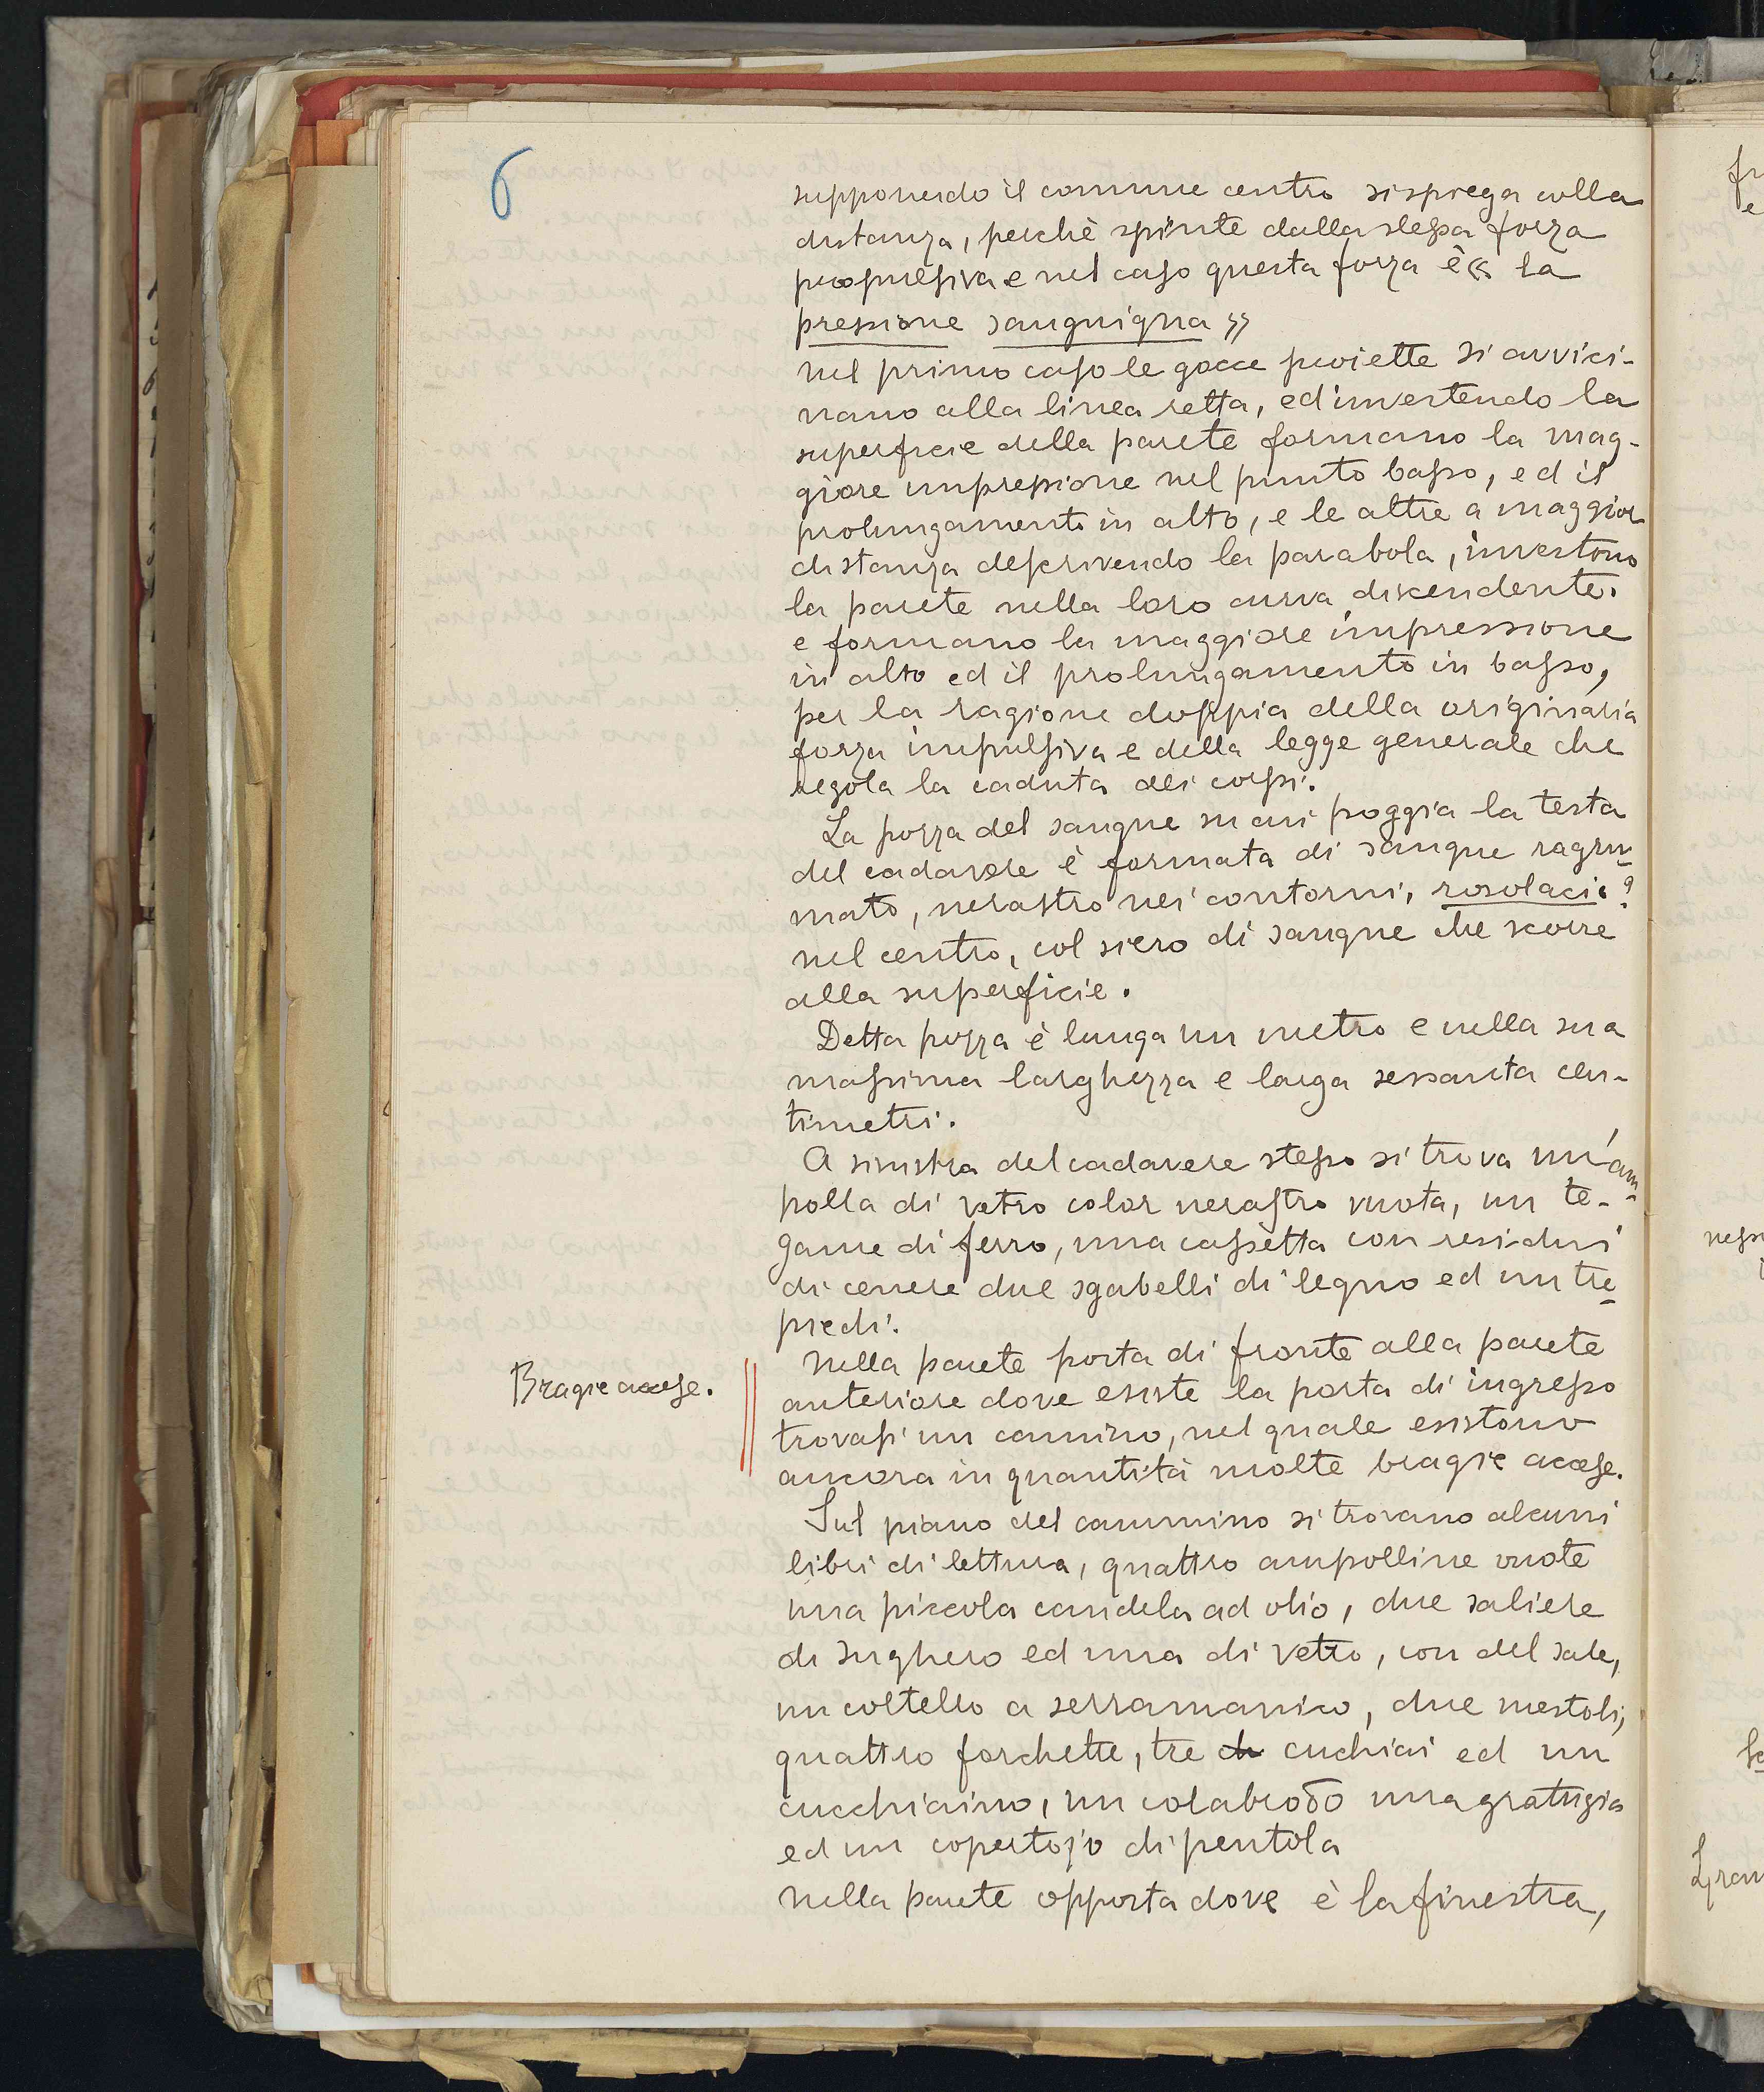 6
supponendo il comune centro si spiega colla
distanza, perchè spinte dalla stessa forza
propulsiva e nel caso questa forza è « la
pressione sanguigna »
nel primo caso le gocce proiette si avvici-
nano alla linea retta, ed investendo la
superficie della parete formano la mag-
giore impressione nel punto basso, ed il
prolungamento in alto, e le altre a maggior
distanza descrivendo la parabola, investono
la parete nella loro curva discendente.
e formano la maggiore impressione
in alto ed il prolungamento in basso,
per la ragione doppia della originaria
forza impulsiva e della legge generale che
regola la caduta dei corpi.
La pozza del sangue su cui poggia la testa
del cadavere è formata di sangue ragru-
mato, nerastro nei contorni, rosolaci ?
nel centro, col siero di sangue che scorre
alla superficie.
Detta pozza è lunga un metro e nella sua
massima larghezza e larga sessanta cen-
timetri.
A sinistra del cadavere stesso si trova un'am-
polla di vetro color nerastro vuota, un te-
game di ferro, una cassetta con residui
di cenere due sgabelli di legno ed un tre-
piedi.
Nella parete posta di fronte alla parete
Bragie accese.
anteriore dove esiste la porta di ingresso
trovasi un camino, nel quale esistono
ancora in quantità molte bragie accese.
Sul piano del cammino si trovano alcuni
libri di lettura, quattro ampolline vuote
una piccola candela ad olio, due saliere
di sughero ed una di vetro, con del sale,
un coltello a serramanico, due mestoli,
quattro forchette, tre ch cuchiai ed un
cucchiaino, un colabrodo una gratugia
ed un copertojo di pentola
nella parete opposta dove è la finestra,